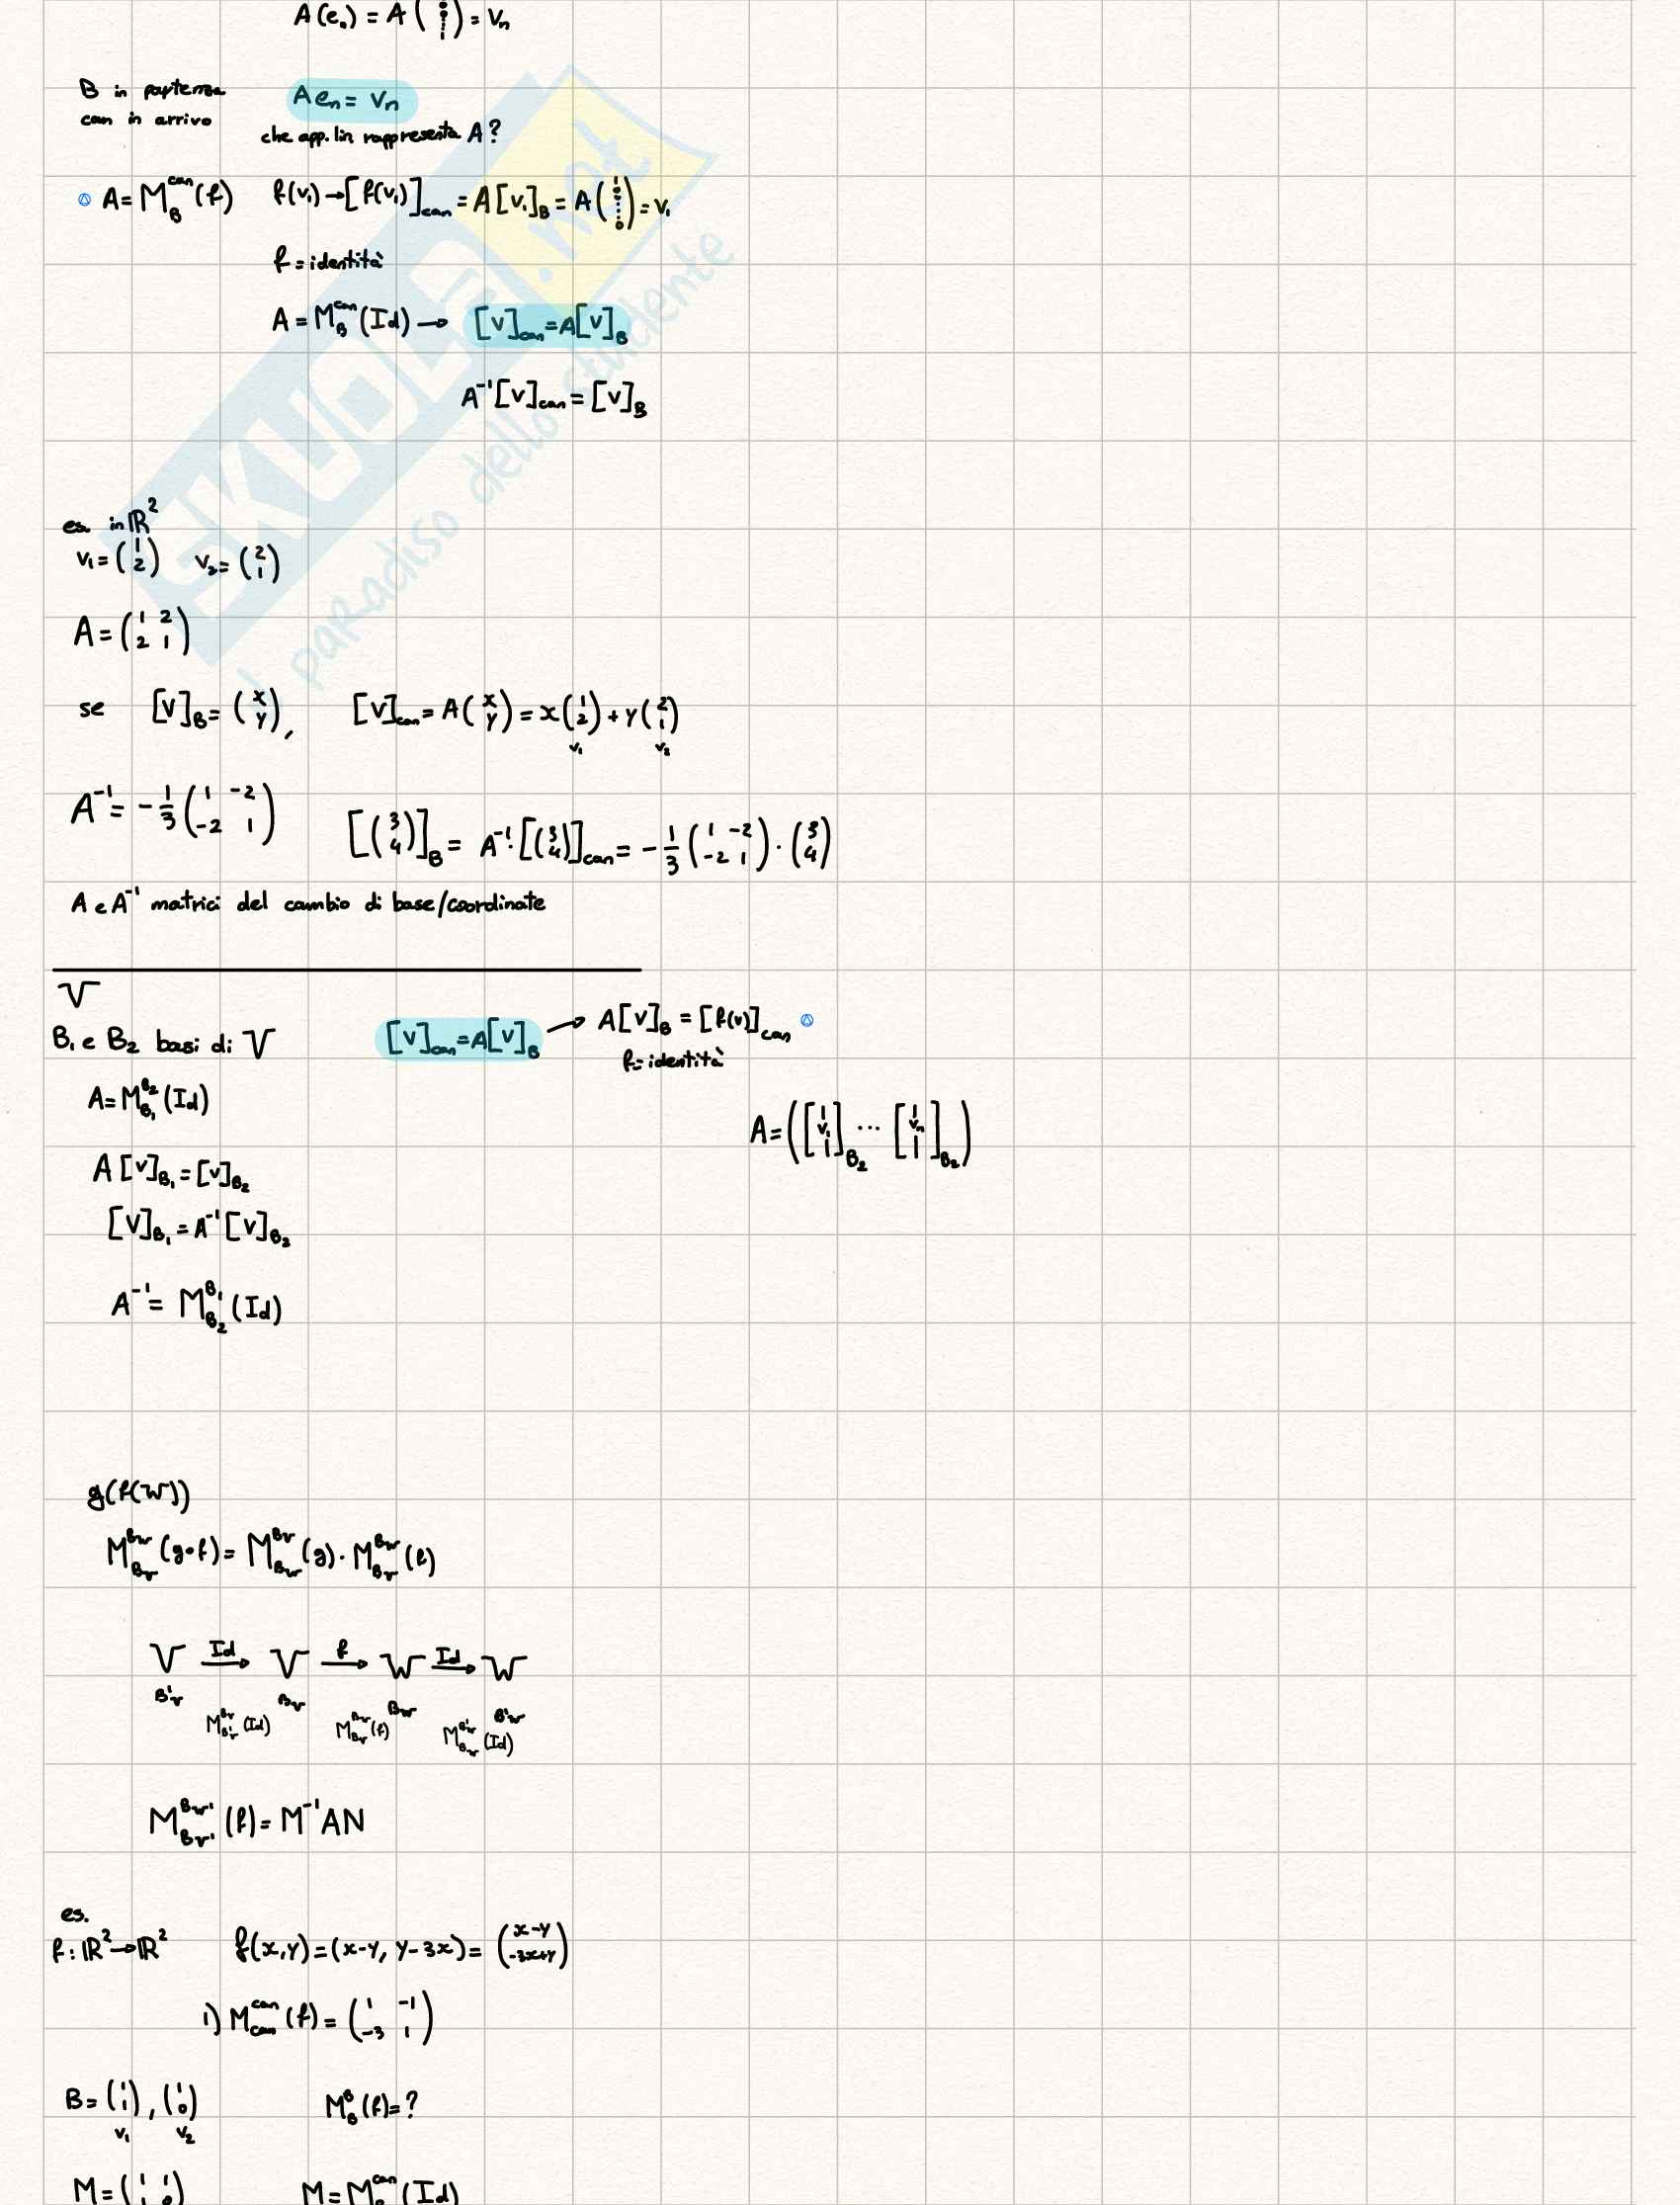 A(eₙ) = A (0 0 ⋮ 1) = vₙ
B in partenza
can in arrivo
Aeₙ = vₙ
che app. lin. rappresenta A?
A = M_B^can (f)   f(v₁) → [f(v₁)]_can = A[v₁]_B = A (1 0 ⋮ 0) = v₁
f = identità
A = M_B^can (Id) → [v]_can = A[v]_B
A⁻¹[v]_can = [v]_B
SKUOLA.net
il paradiso dello studente
es. in ℝ²
v₁ = (1 2)   v₂ = (2 1)
A = (1 2
2 1)
se [v]_B = (x y), [v]_can = A (x y) = x (1 2) + y (2 1)
v₁ v₂
A⁻¹ = -1/3 (1 -2
-2 1)
[(3 4)]_B = A⁻¹·[(3 4)]_can = -1/3 (1 -2
-2 1) · (3 4)
A e A⁻¹ matrici del cambio di base/coordinate
V
B₁ e B₂ basi di V
[v]_can = A[v]_B → A[v]_B = [f(v)]_can
f = identità
A = M_B₁^B₂ (Id)
A = ([v₁]_B₂ ... [vₙ]_B₂)
A[v]_B₁ = [v]_B₂
[v]_B₁ = A⁻¹[v]_B₂
A⁻¹ = M_B₂^B₁ (Id)
g(f(W))
M_Bv^Bw (g∘f) = M_Bw^Bv (g) · M_Bv^Bw (f)
V Id→ V f→ W Id→ W
B'v Bv Bw B'w
M_B'v^Bv (Id) M_Bv^Bw (f) M_Bw^B'w (Id)
M_Bv'^Bw' (f) = M⁻¹AN
es.
f: ℝ² → ℝ²   f(x,y) = (x-y, y-3x) = (x-y
-3x+y)
1) M_can^can (f) = (1 -1
-3 1)
B = (1 1), (1 0)   M_B^B (f) = ?
v₁ v₂
M = (1 1
1 0)   M = M_B^can (Id)